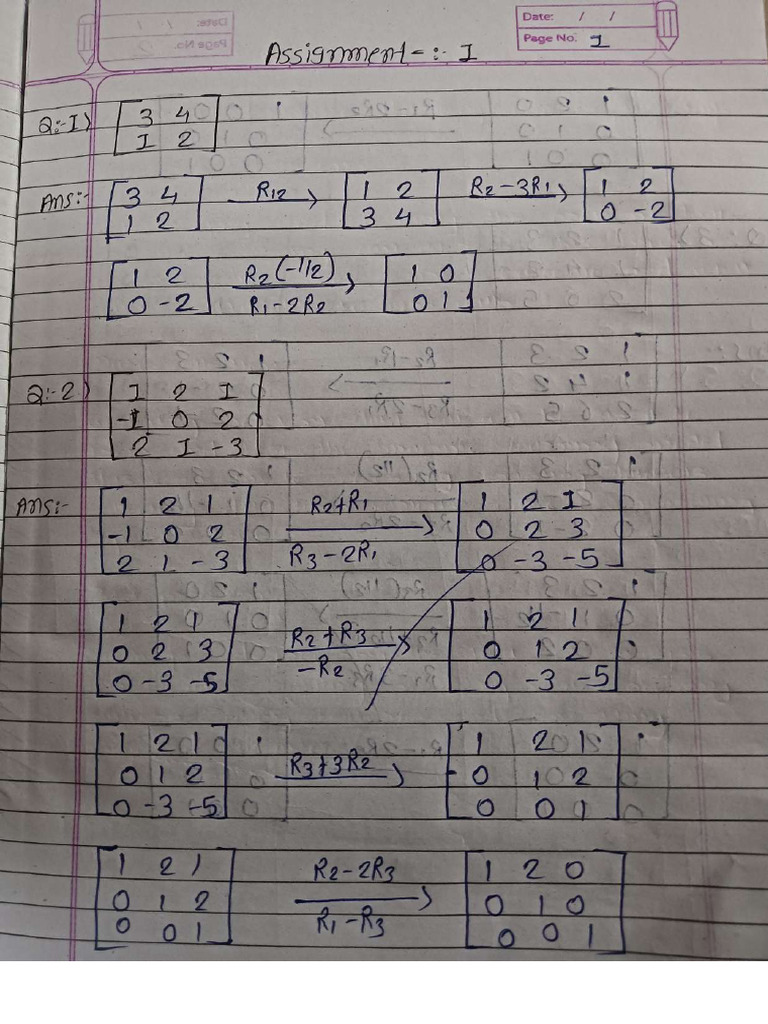 Date: / /
Page No: 1
Assignment-:- I
Q:-1)
3 4
1 2
Ans:-
3 4
1 2
R12
1 2
3 4
R2-3R1
1 2
0 -2
1 2
0 -2
R2(-1/2)
R1-2R2
1 0
0 1
Q:-2)
1 2 1
-1 0 2
2 1 -3
Ans:-
1 2 1
-1 0 2
2 1 -3
R2+R1
R3-2R1
1 2 1
0 2 3
0 -3 -5
1 2 1
0 2 3
0 -3 -5
R2+R3
-R2
1 2 1
0 1 2
0 -3 -5
1 2 1
0 1 2
0 -3 -5
R3+3R2
1 2 1
0 1 2
0 0 1
1 2 1
0 1 2
0 0 1
R2-2R3
R1-R3
1 2 0
0 1 0
0 0 1